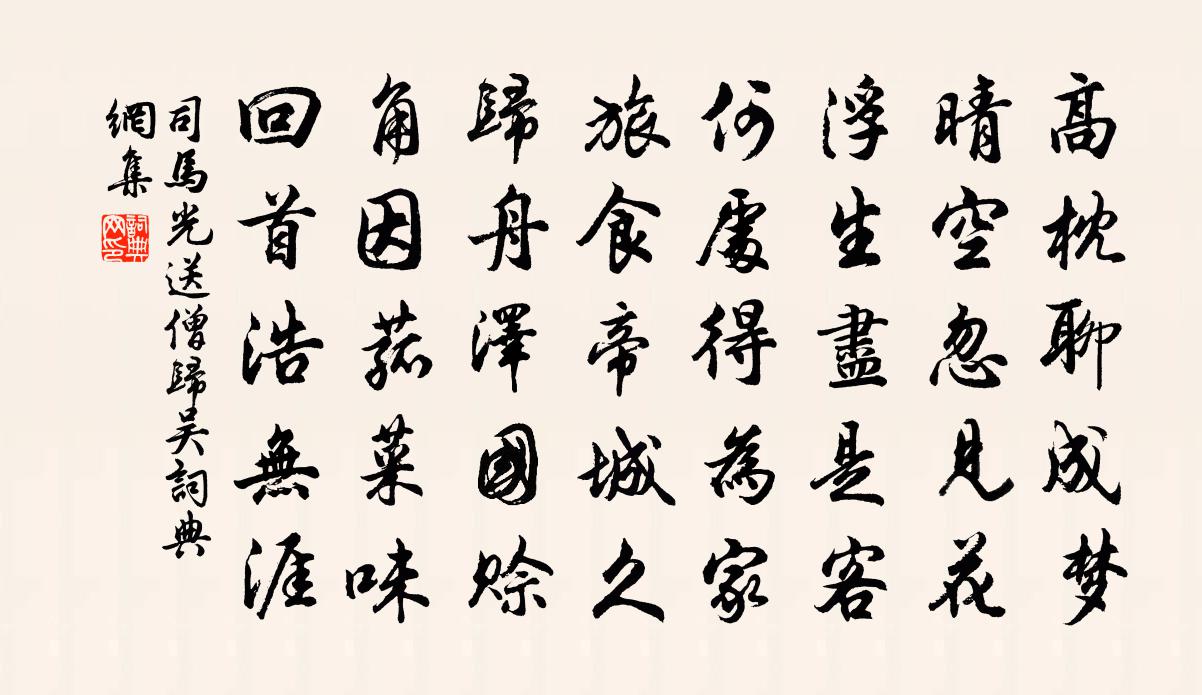 高枕聊成梦
晴空忽見花
浮生盡是客
何處得為家
旅食帝城久
歸舟澤國賒
角因菰菜味
回首浩無涯
司馬光送僧歸吴詞典
網集
詞典
网印